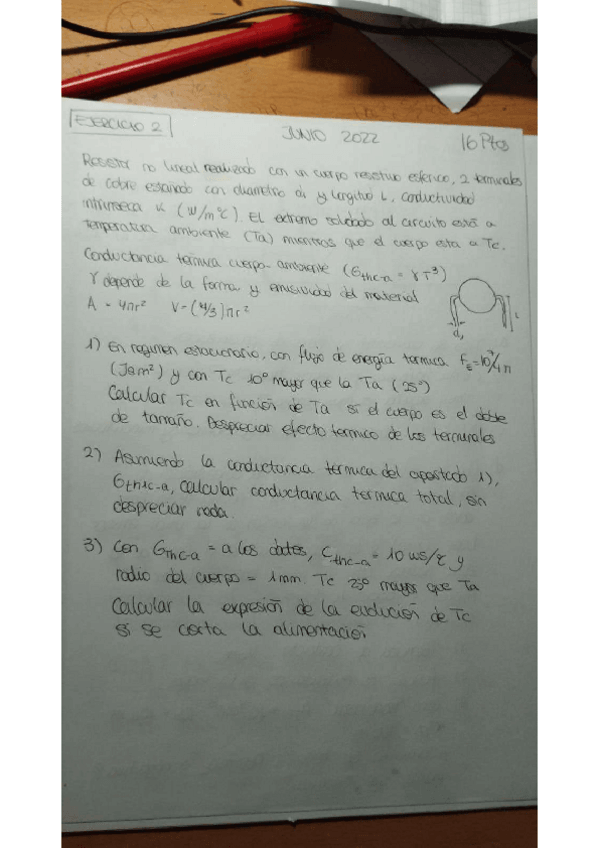 EJERCICIO 2
JUNIO 2022
16 Ptos
Resistor no lineal realizado con un cuerpo resistivo esférico, 2 terminales
de cobre estañado con diametro di y longitud L, conductividad
intrinseca K (W/m°C). El extremo soldado al circuito está a
Temperatura ambiente (Ta) mientras que el cuerpo esta a Tc.
Conductancia termica cuerpo-ambiente (Gthc-a = γT³)
γ depende de la forma y emisividad del material
A = 4πr² V=(4/3)πr²
L
di
1) En regimen estacionario, con flujo de energía termica
y con Tc 10° mayor que la Ta (25°)
Calcular Tc en función de Ta si el cuerpo es el doble
de tamaño. Despreciar efecto termico de los terminales
2) Asumiendo la conductancia termica del apartado 1),
Gthc-a, calcular conductancia termica total, sin
despreciar nada.
3) Con Gthc-a = a los datos, Cthc-a = 10 ws/°C y
radio del cuerpo = 1mm. Tc 25° mayor que Ta
Calcular la expresión de la evolución de Tc
si se corta la alimentación